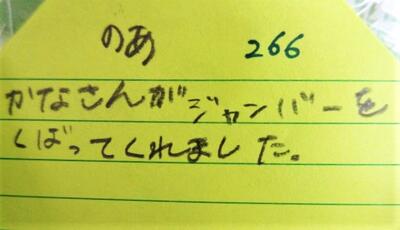 のあ 266
かなさんがジャンバーを
くばってくれました。